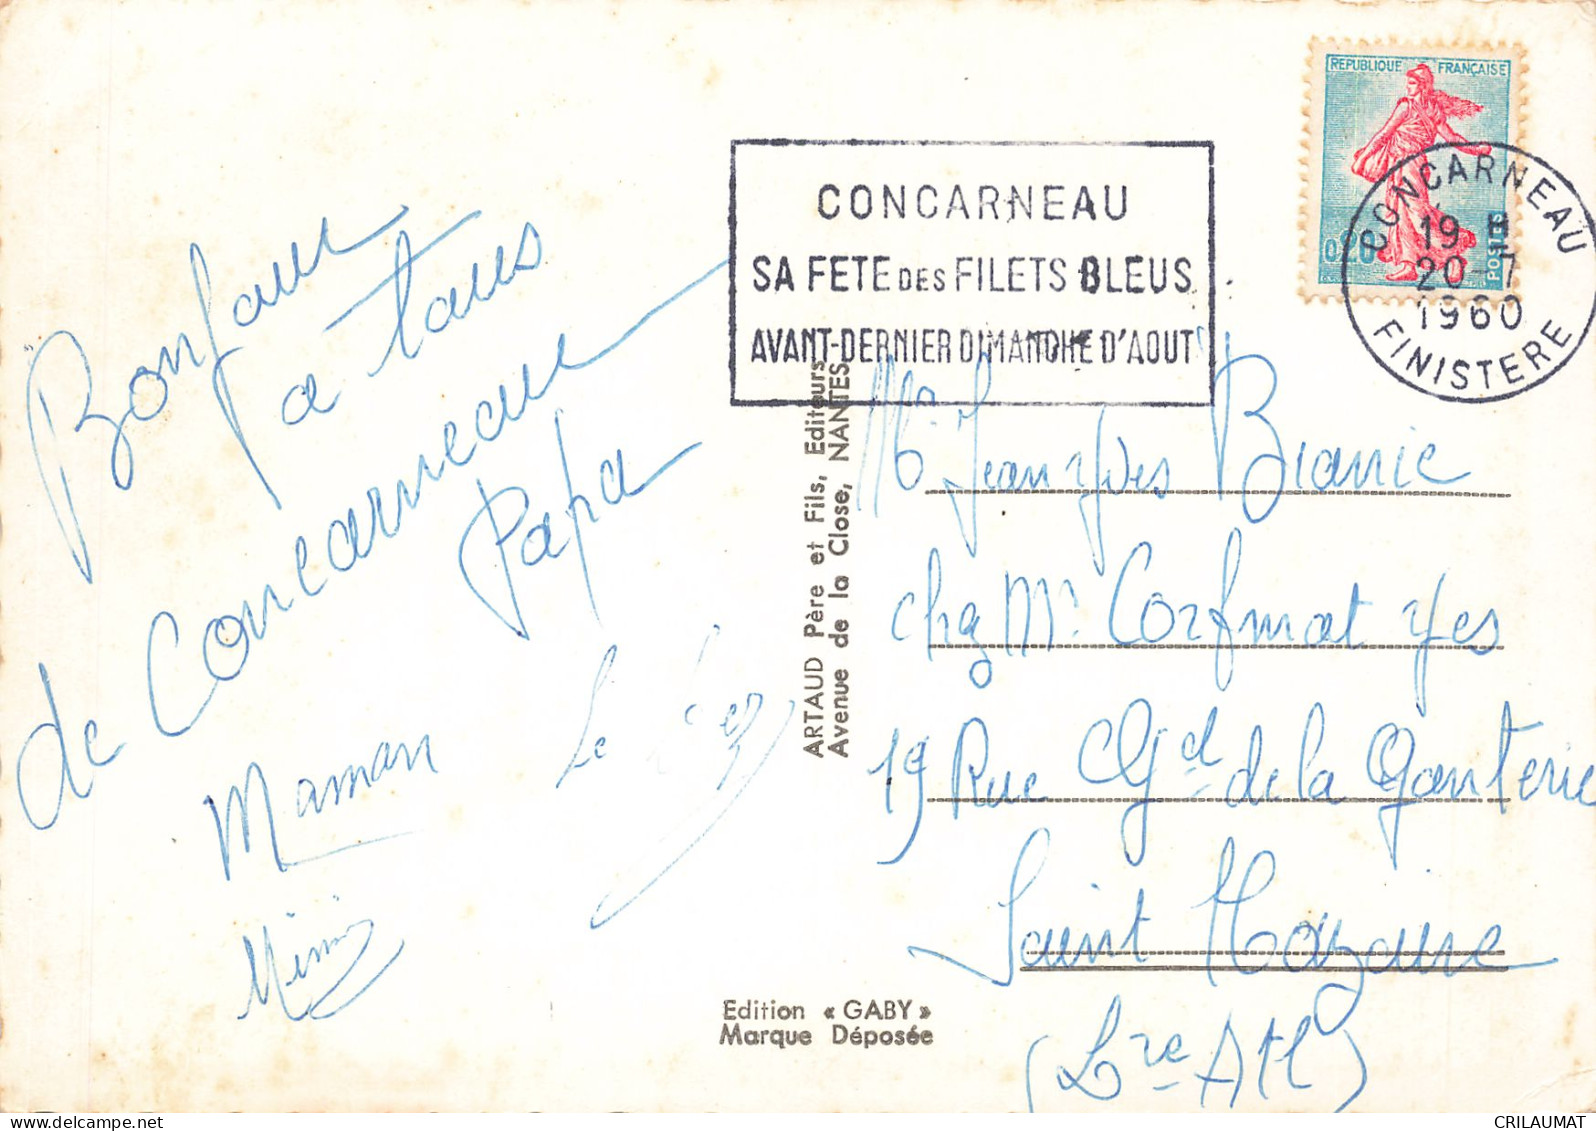 REPUBLIQUE FRANÇAISE
0,20
POSTES
CONCARNEAU
19 H
20-7
1960
FINISTERE
CONCARNEAU
SA FETE DES FILETS BLEUS
AVANT-DERNIER DIMANCHE D'AOUT
Bonjour
a tous
de Concarneau
Papa
Maman
Mimi
Le
ARTAUD Père et Fils, Editeurs
Avenue de la Close, NANTES
Mr Jean Yves Bianic
chez Mr Corfmat Yes
19 Rue Gd de la Ganterie
Saint Nazaire
(Lre Atl)
Edition « GABY »
Marque Déposée
CRILAUMAT